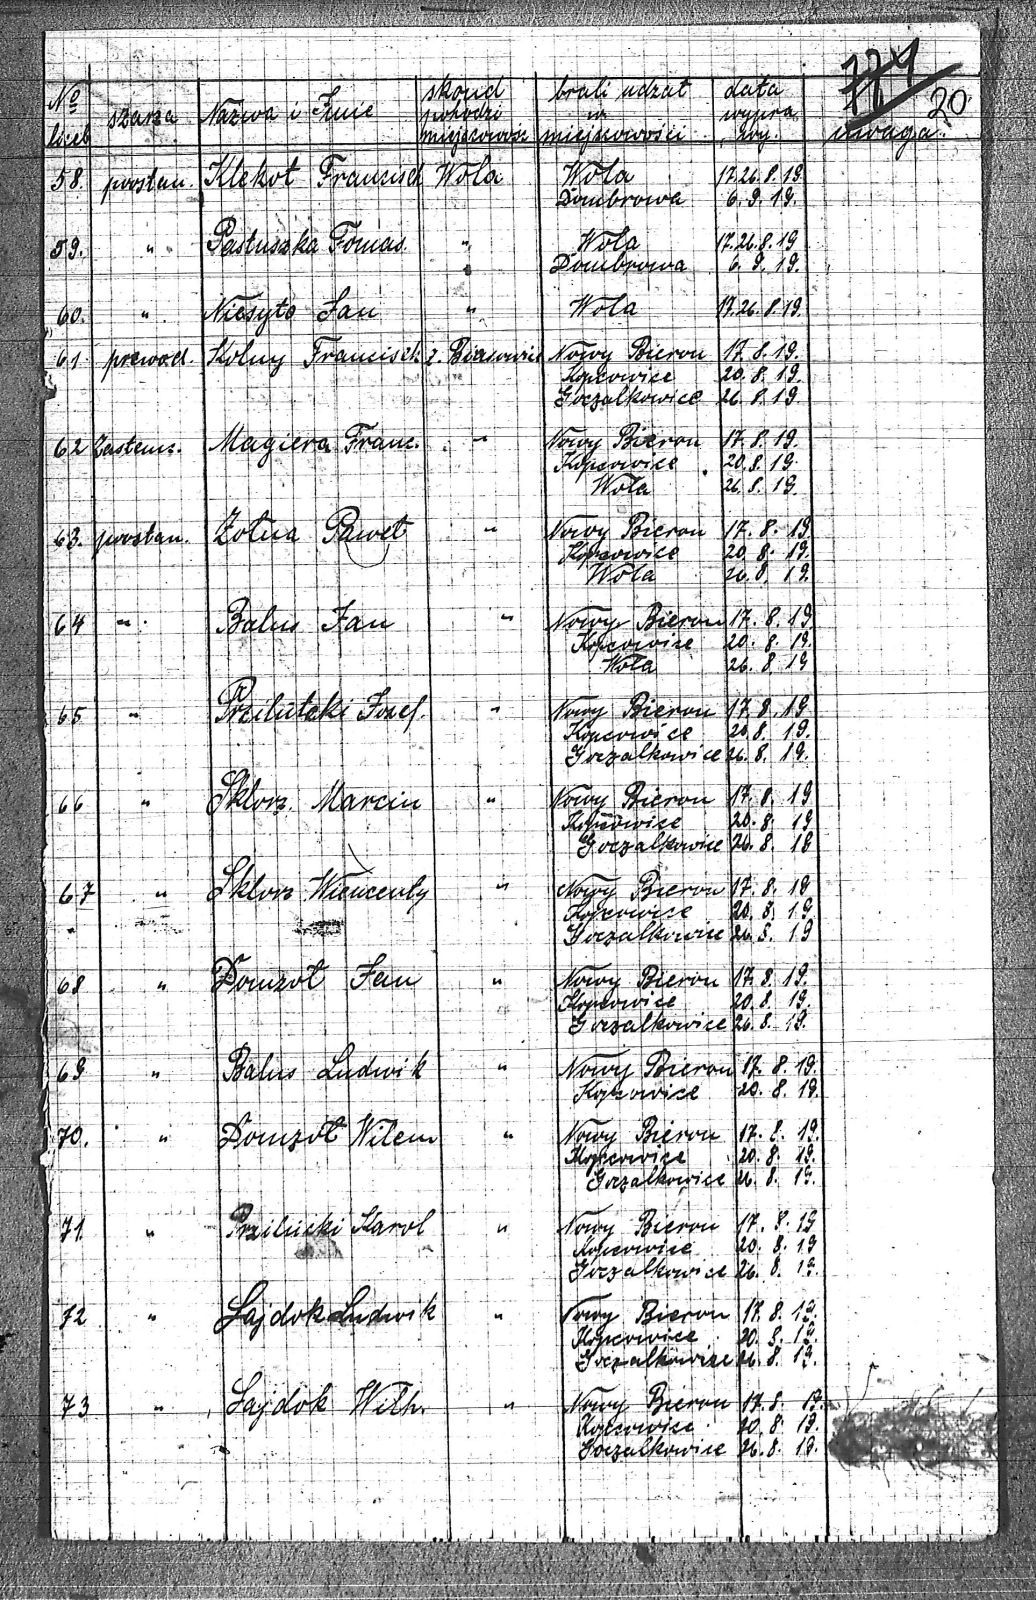 20
No liczb szarza Nazwa i Imie skond pohodzi miejscowość brali udzał w miejscowości data wypra wy. uwaga.
58. powstan. Klekot Francisek Wola Wola 17.26.8.19
Dombrowa 6.9.19.
59. " Pastuszka Tomas. " Wola 17.26.8.19
" Dombrowa 6.9.19.
60. " Niesyto Jan " Wola 17.26.8.19.
61. prewod. Kolny Francisek z. Nowy Bieron 17.8.19.
Kopcowice 20.8.19.
Goczalkowice 26.8.19.
62 Zastemz. Magiera Franc. " Nowy Bieron 17.8.19.
Kopcowice 20.8.19.
Wola 26.8.19.
63. powstan. Zolna Paweł " Nowy Bieron 17.8.19.
Kopcowice 20.8.19.
Wola 26.8.19.
64 " Balus Jan " Nowy Bieron 17.8.19
Kopcowice 20.8.19.
Wola 26.8.19
65 " Przilutcki Josef. " Nowy Bieron 17.8.19
Kopcowice 20.8.19.
Goczalkowice 26.8.19.
66 " Sklorz Marcin " Nowy Bieron 17.8.19
Kopcowice 20.8.19
Goczalkowice 26.8.19
67 " Sklorz Wiencenty " Nowy Bieron 17.8.19
Kopcowice 20.8.19
Goczalkowice 26.8.19
68 " Domzoł Jan " Nowy Bieron 17.8.19.
Kopcowice 20.8.19.
Goczalkowice 26.8.19.
69 " Balus Ludwik " Nowy Bieron 17.8.19.
Kopcowice 20.8.19.
70. " Domzoł Wilem " Nowy Bieron 17.8.19.
Kopcowice 20.8.19.
Goczalkowice 26.8.19.
71. " Przilucki Karol " Nowy Bieron 17.8.19
Kopcowice 20.8.19
Goczalkowice 26.8.19.
72 " Lajdok Ludwik " Nowy Bieron 17.8.19.
Kopcowice 20.8.19.
Goczalkowice 26.8.19.
73 " Lajdok Wilh. " Nowy Bieron 17.8.17.
Kopcowice 20.8.19.
Goczalkowice 26.8.19.